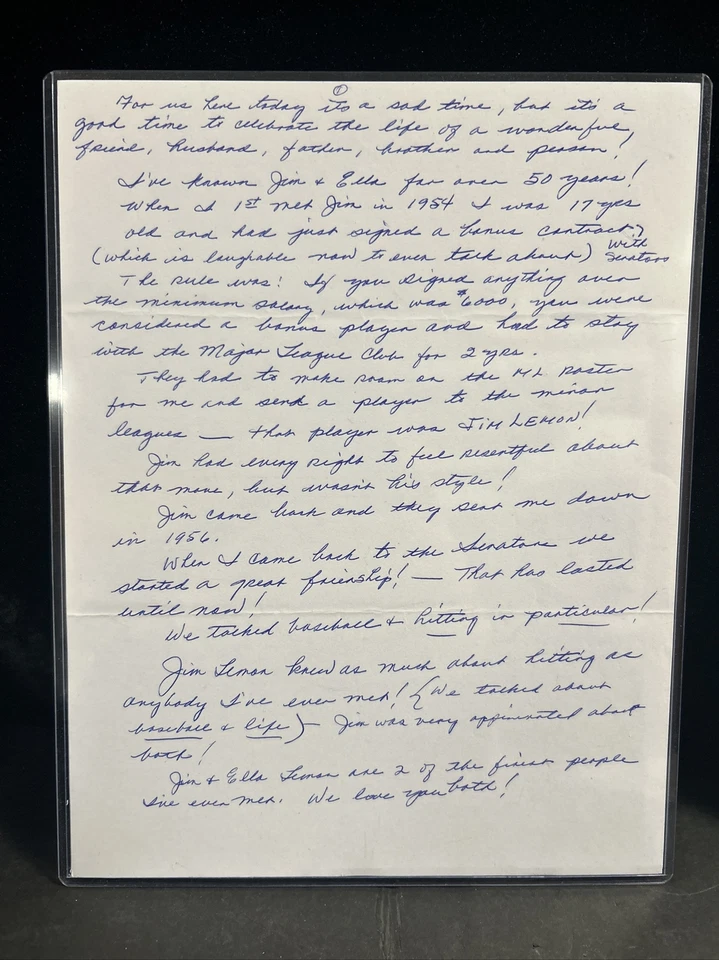 ①
For us here today its a sad time, but it's a
good time to celebrate the life of a wonderful,
friend, husband, father, brother and person!
I've known Jim & Ella for over 50 years!
When I 1st met Jim in 1954 I was 17 yrs
old and had just signed a bonus contract,
(which is laughable now to even talk about) with
Senators
The rule was: If you signed anything over
the minimum salary, which was $6000, you were
considered a bonus player and had to stay
with the Major League Club for 2 yrs.
They had to make room on the ML roster
for me and send a player to the minor
leagues — that player was JIM LEMON!
Jim had every right to feel resentful about
that move, but wasn't his style!
Jim came back and they sent me down
in 1956.
When I came back to the Senators we
started a great frienship! — That has lasted
until now!
We talked baseball & hitting in particular!
Jim Lemon knew as much about hitting as
anybody I've ever met! (We talked about
baseball & life) — Jim was very oppinunated about
both!
Jim & Ella Lemon are 2 of the finest people
I've ever met. We love you both!